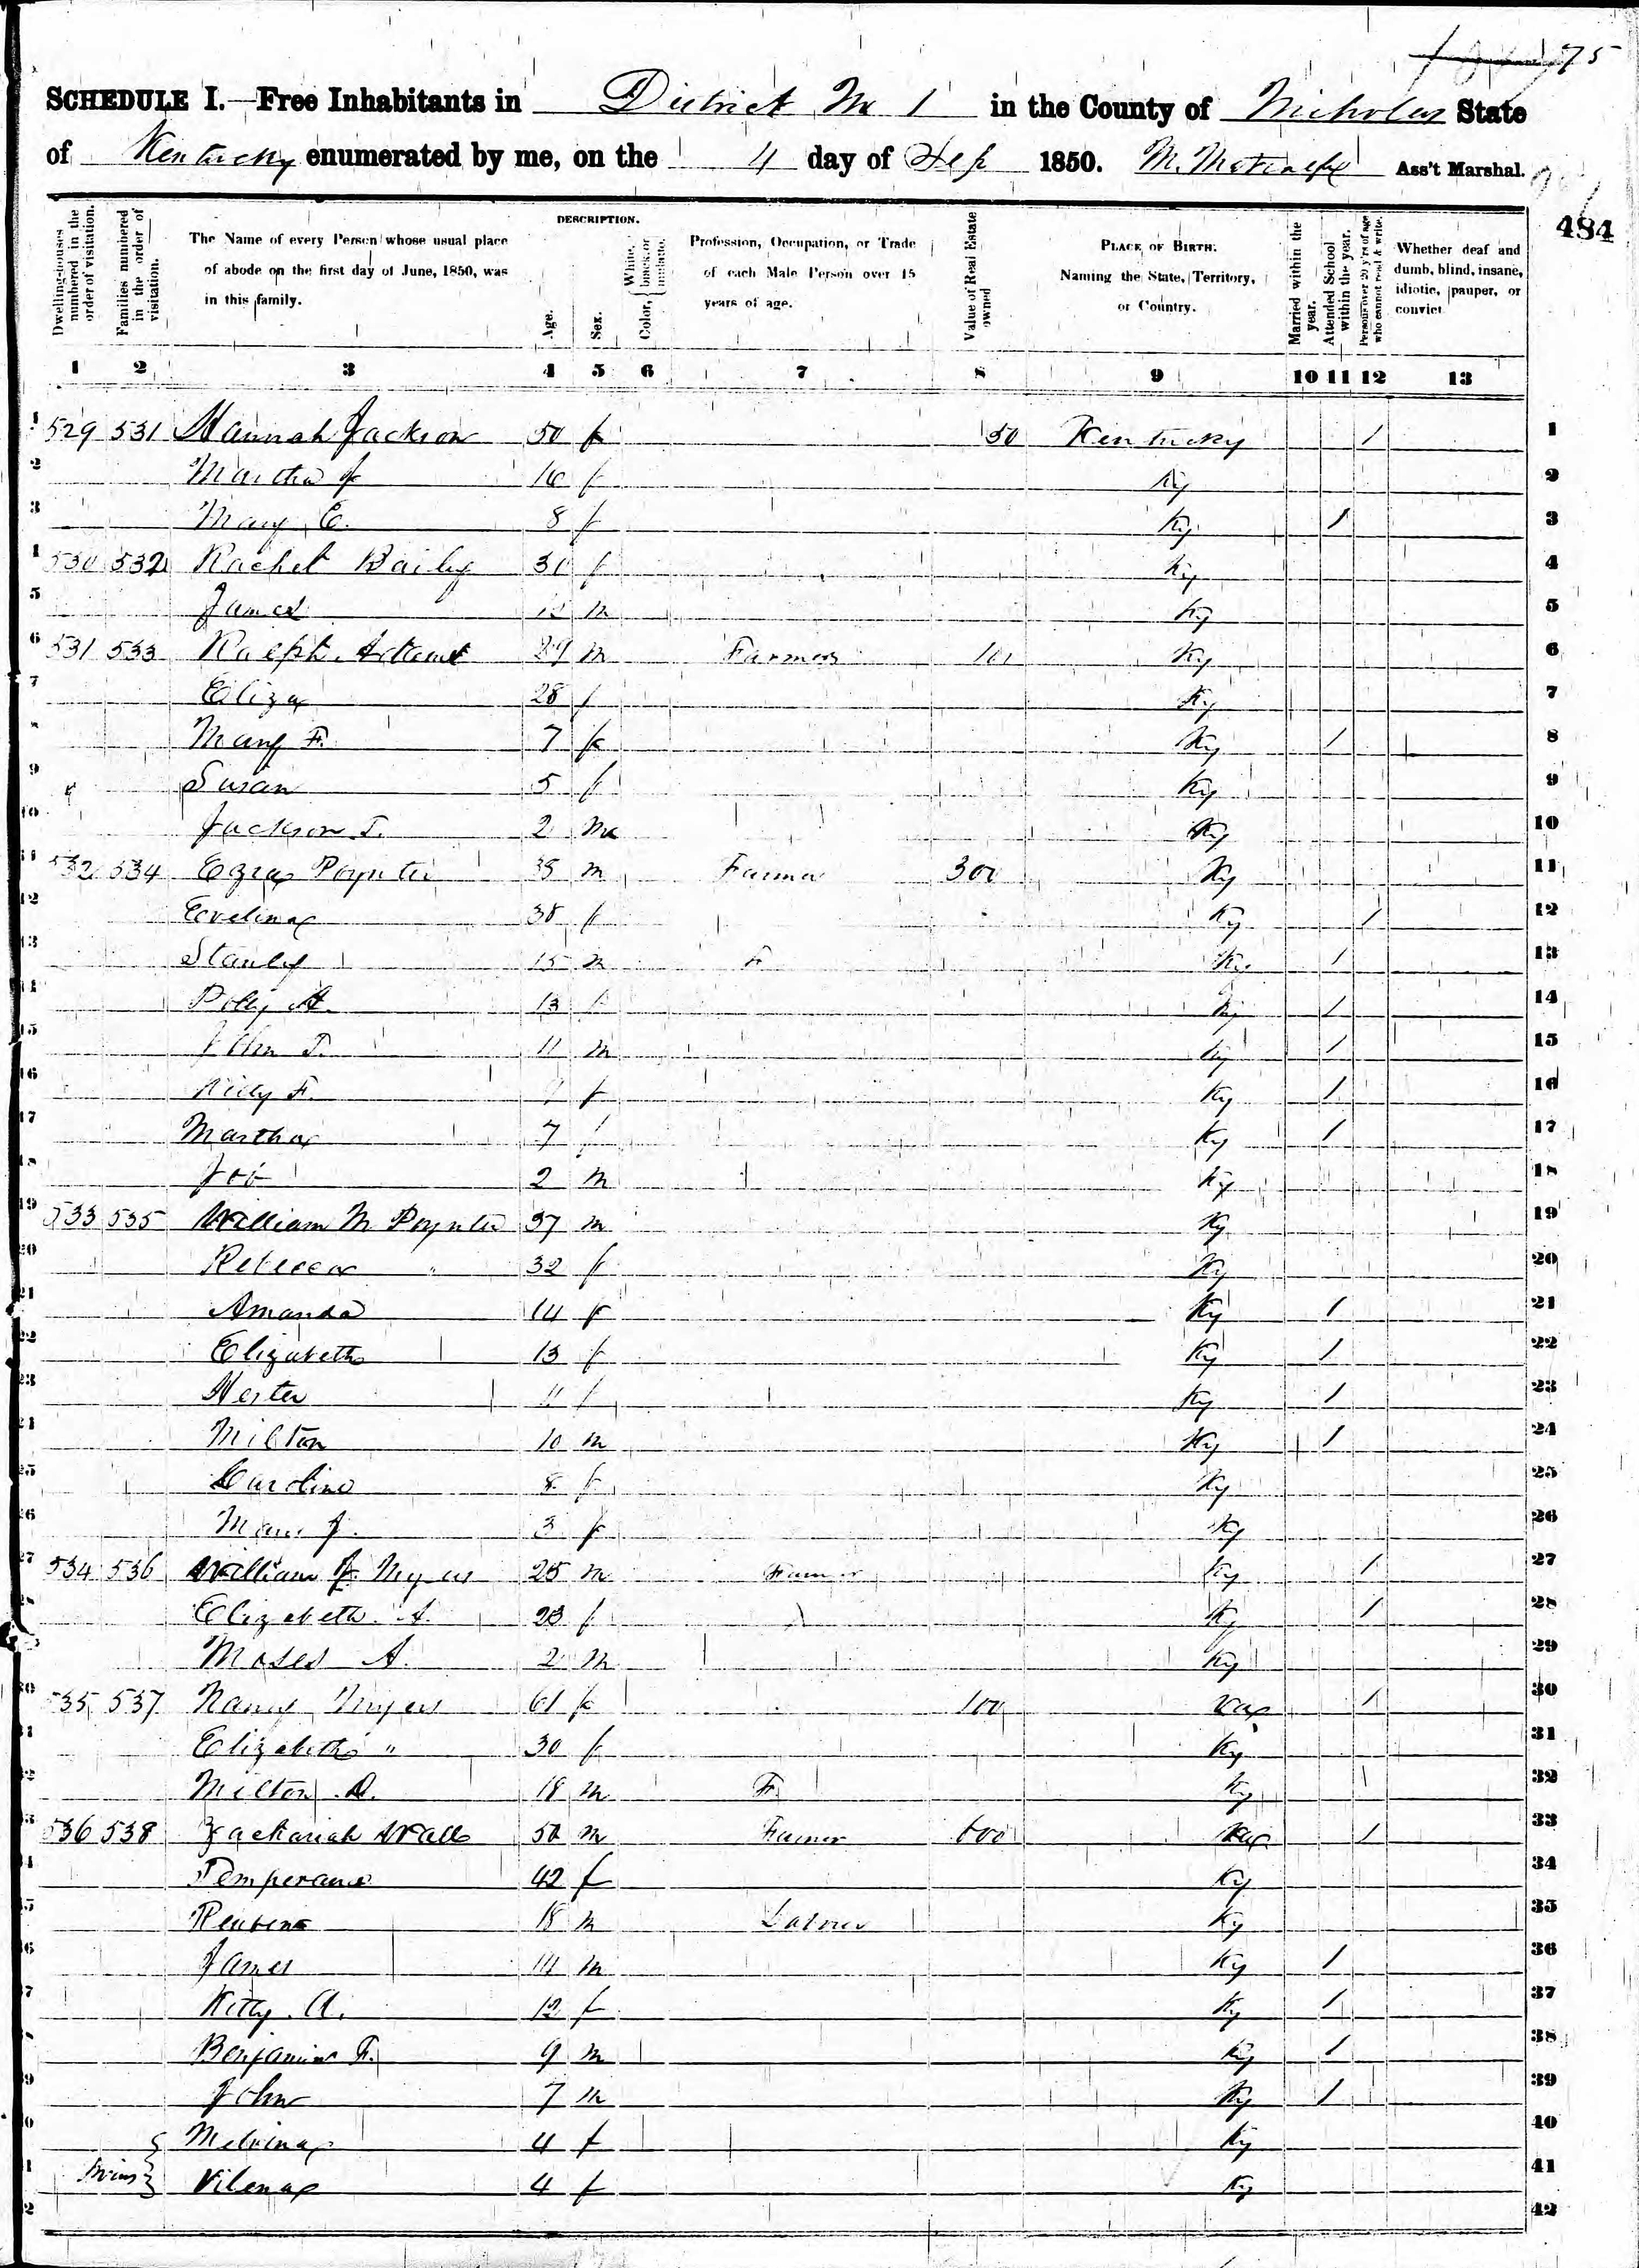 75
SCHEDULE I.—Free Inhabitants in District No 1 in the County of Nicholas State
of Kentucky enumerated by me, on the 4 day of Sep 1850. M. Metcalfe Ass't Marshal.
484
Dwelling-houses numbered in the order of visitation.
Families numbered in the order of visitation.
The Name of every Person whose usual place of abode on the first day of June, 1850, was in this family.
DESCRIPTION.
Age.
Sex.
Color, White, black, or mulatto.
Profession, Occupation, or Trade of each Male Person over 15 years of age.
Value of Real Estate owned
PLACE OF BIRTH. Naming the State, Territory, or Country.
Married within the year.
Attended School within the year.
Persons over 20 y'rs of age who cannot read & write.
Whether deaf and dumb, blind, insane, idiotic, pauper, or convict.
1 2 3 4 5 6 7 8 9 10 11 12 13
1 529 531 Hannah Jackson 50 f 50 Kentucky 1 1
2 Martha J 16 f Ky 2
3 Mary E. 8 f Ky 1 3
530 532 Rachel Baily 31 f Ky 4
5 James m Ky 5
6 531 533 Ralph 29 m Farmer Ky 6
7 Eliza 28 f Ky 7
Mary F. 7 f Ky 1 8
9 Susan 5 f Ky 9
10 Jackson T. 2 m Ky 10
11 532 534 Ezra Poynter 35 m Farmer 300 Ky 11
12 Evelina 38 f Ky 1 12
13 Stanly 15 m F Ky 1 13
Polly A. 13 f Ky 1 14
15 John T. 11 m Ky 1 15
16 F. 9 f Ky 1 16
17 Martha 7 f Ky 1 17
18 Job 2 m Ky 18
19 533 535 William M Poynter 37 m Ky 19
20 Rebecca " 32 f Ky 20
21 Amanda 14 f Ky 1 21
22 Elizabeth 13 f Ky 1 22
23 Hester 11 f Ky 1 23
24 Milton 10 m Ky 1 24
25 Caroline 8 f Ky 25
26 Mary J. 3 f Ky 26
27 534 536 William J Myers 25 m Farmer Ky 1 27
28 Elizabeth A. 23 f Ky 1 28
Moses A. 2 m Ky 29
30 535 537 Nancy Myers 61 f 100 Va 1 30
Elizabeth " 30 f Ky 31
Milton D. 18 m F Ky 1 32
536 538 Zachariah Wall 50 m Farmer 600 Va 1 33
Temperance 42 f Ky 34
Reuben 18 m Laborer Ky 35
James 14 m Ky 1 36
Kitty A. 12 f Ky 1 37
Benjamin F. 9 m Ky 1 38
John 7 m Ky 1 39
Melvina 4 f Ky 40
Twins Vilena 4 f Ky 41
42